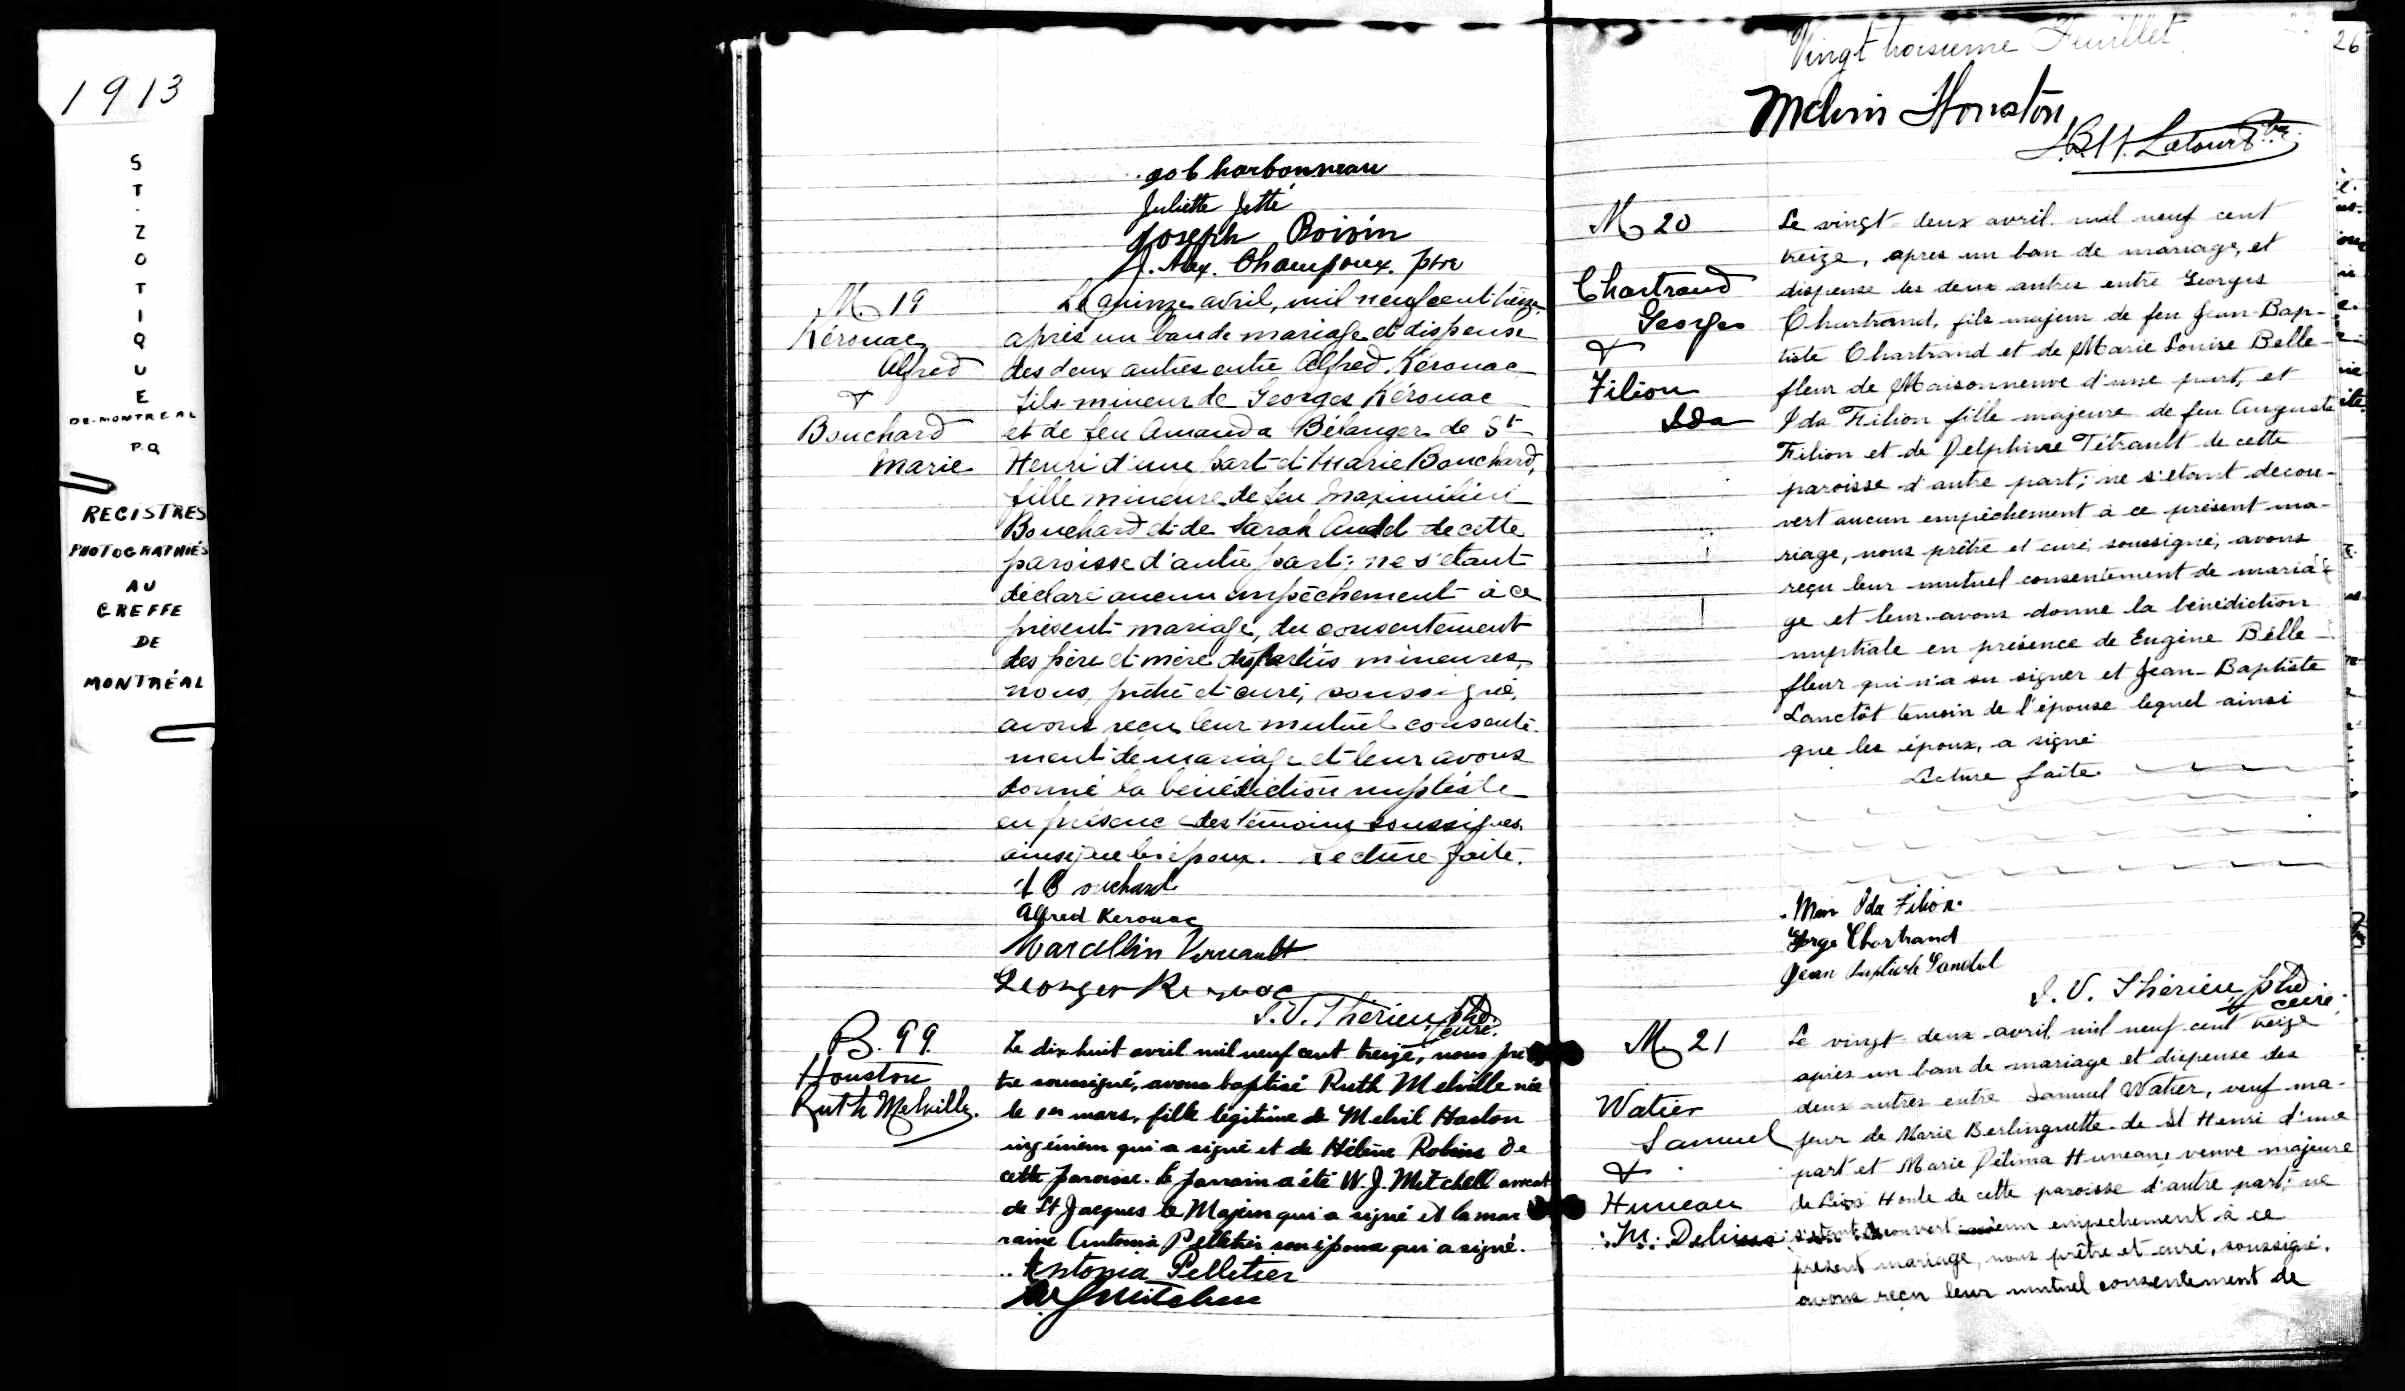 1913
ST-ZOTIQUE
DE-MONTREAL
P.Q
REGISTRES
PHOTOGRAPHIÉS
AU
GREFFE
DE
MONTRÉAL
Charbonneau
Juliette Jetté
Joseph Boivin
J. Alex. Champoux. ptre
M. 19
Kérouac
Alfred
&
Bouchard
Marie
Le quinze avril, mil neuf cent treize
après un ban de mariage et dispense
des deux autres entre Alfred Kérouac
fils mineur de Georges Kérouac
et de feu Amanda Bélanger de St
Henri d'une part et Marie Bouchard,
fille mineure de feu Maximilien
Bouchard et de Sarah Audet de cette
paroisse d'autre part; ne s'étant
déclaré aucun empêchement à ce
présent mariage, du consentement
des père et mère des parties mineures,
nous, prêtre et curé, soussigné,
avons reçu leur mutuel consente-
ment de mariage et leur avons
donné la bénédiction nuptiale
en présence des témoins soussignés
ainsi que les époux. Lecture faite.
Bouchard
Alfred Kerouac
Marcellin
Georges Kerouac
J. V. Thérien, ptre
curé.
B. 99.
Houston
Ruth Melville.
Le dix huit avril mil neuf cent treize, nous prê
tre soussigné, avons baptisé Ruth Melville née
le 1er mars, fille légitime de Melvil Houston
ingénieur qui a signé et de Hélène Robins de
cette paroisse. le parrain a été W. J. Mitchell avocat
de St Jacques le Majeur qui a signé et la mar
raine Antonia Pelletier son épouse qui a signé.
Antonia Pelletier
W J Mitchell
Vingt troisieme Feuillet
26
Melvin Houston
Latour Ptre
M 20
Chartrand
Georges
&
Filion
Ida
Le vingt-deux avril mil neuf cent
treize, apres un ban de mariage, et
dispense les deux autres entre Georges
Chartrand, fils majeur de feu Jean-Bap-
tiste Chartrand et de Marie Louise Belle-
fleur de Maisonneuve d'une part, et
Ida Filion fille majeure de feu Auguste
Filion et de Delphine Tétrault de cette
paroisse d'autre part; ne s'étant décou-
vert aucun empêchement à ce présent ma-
riage, nous prêtre et curé, soussigné, avons
reçu leur mutuel consentement de maria-
ge et leur avons donné la bénédiction
nuptiale en présence de Eugène Belle-
fleur qui n'a su signer et Jean-Baptiste
Lanctôt témoin de l'épouse lequel ainsi
que les époux, a signé
Lecture faite.
Ida Filion
George Chartrand
Jean Baptiste
J. V. Thérien, ptre
curé.
M 21
Watier
Samuel
&
Huneau
M. Delima
Le vingt-deux avril mil neuf cent treize
après un ban de mariage et dispense des
deux autres entre Samuel Watier, veuf ma-
jeur de Marie Berlinguette de St Henri d'une
part et Marie Délima Huneau, veuve majeure
de Léon Houle de cette paroisse d'autre part; ne
s'étant découvert aucun empêchement à ce
présent mariage, nous prêtre et curé, soussigné,
avons reçu leur mutuel consentement de